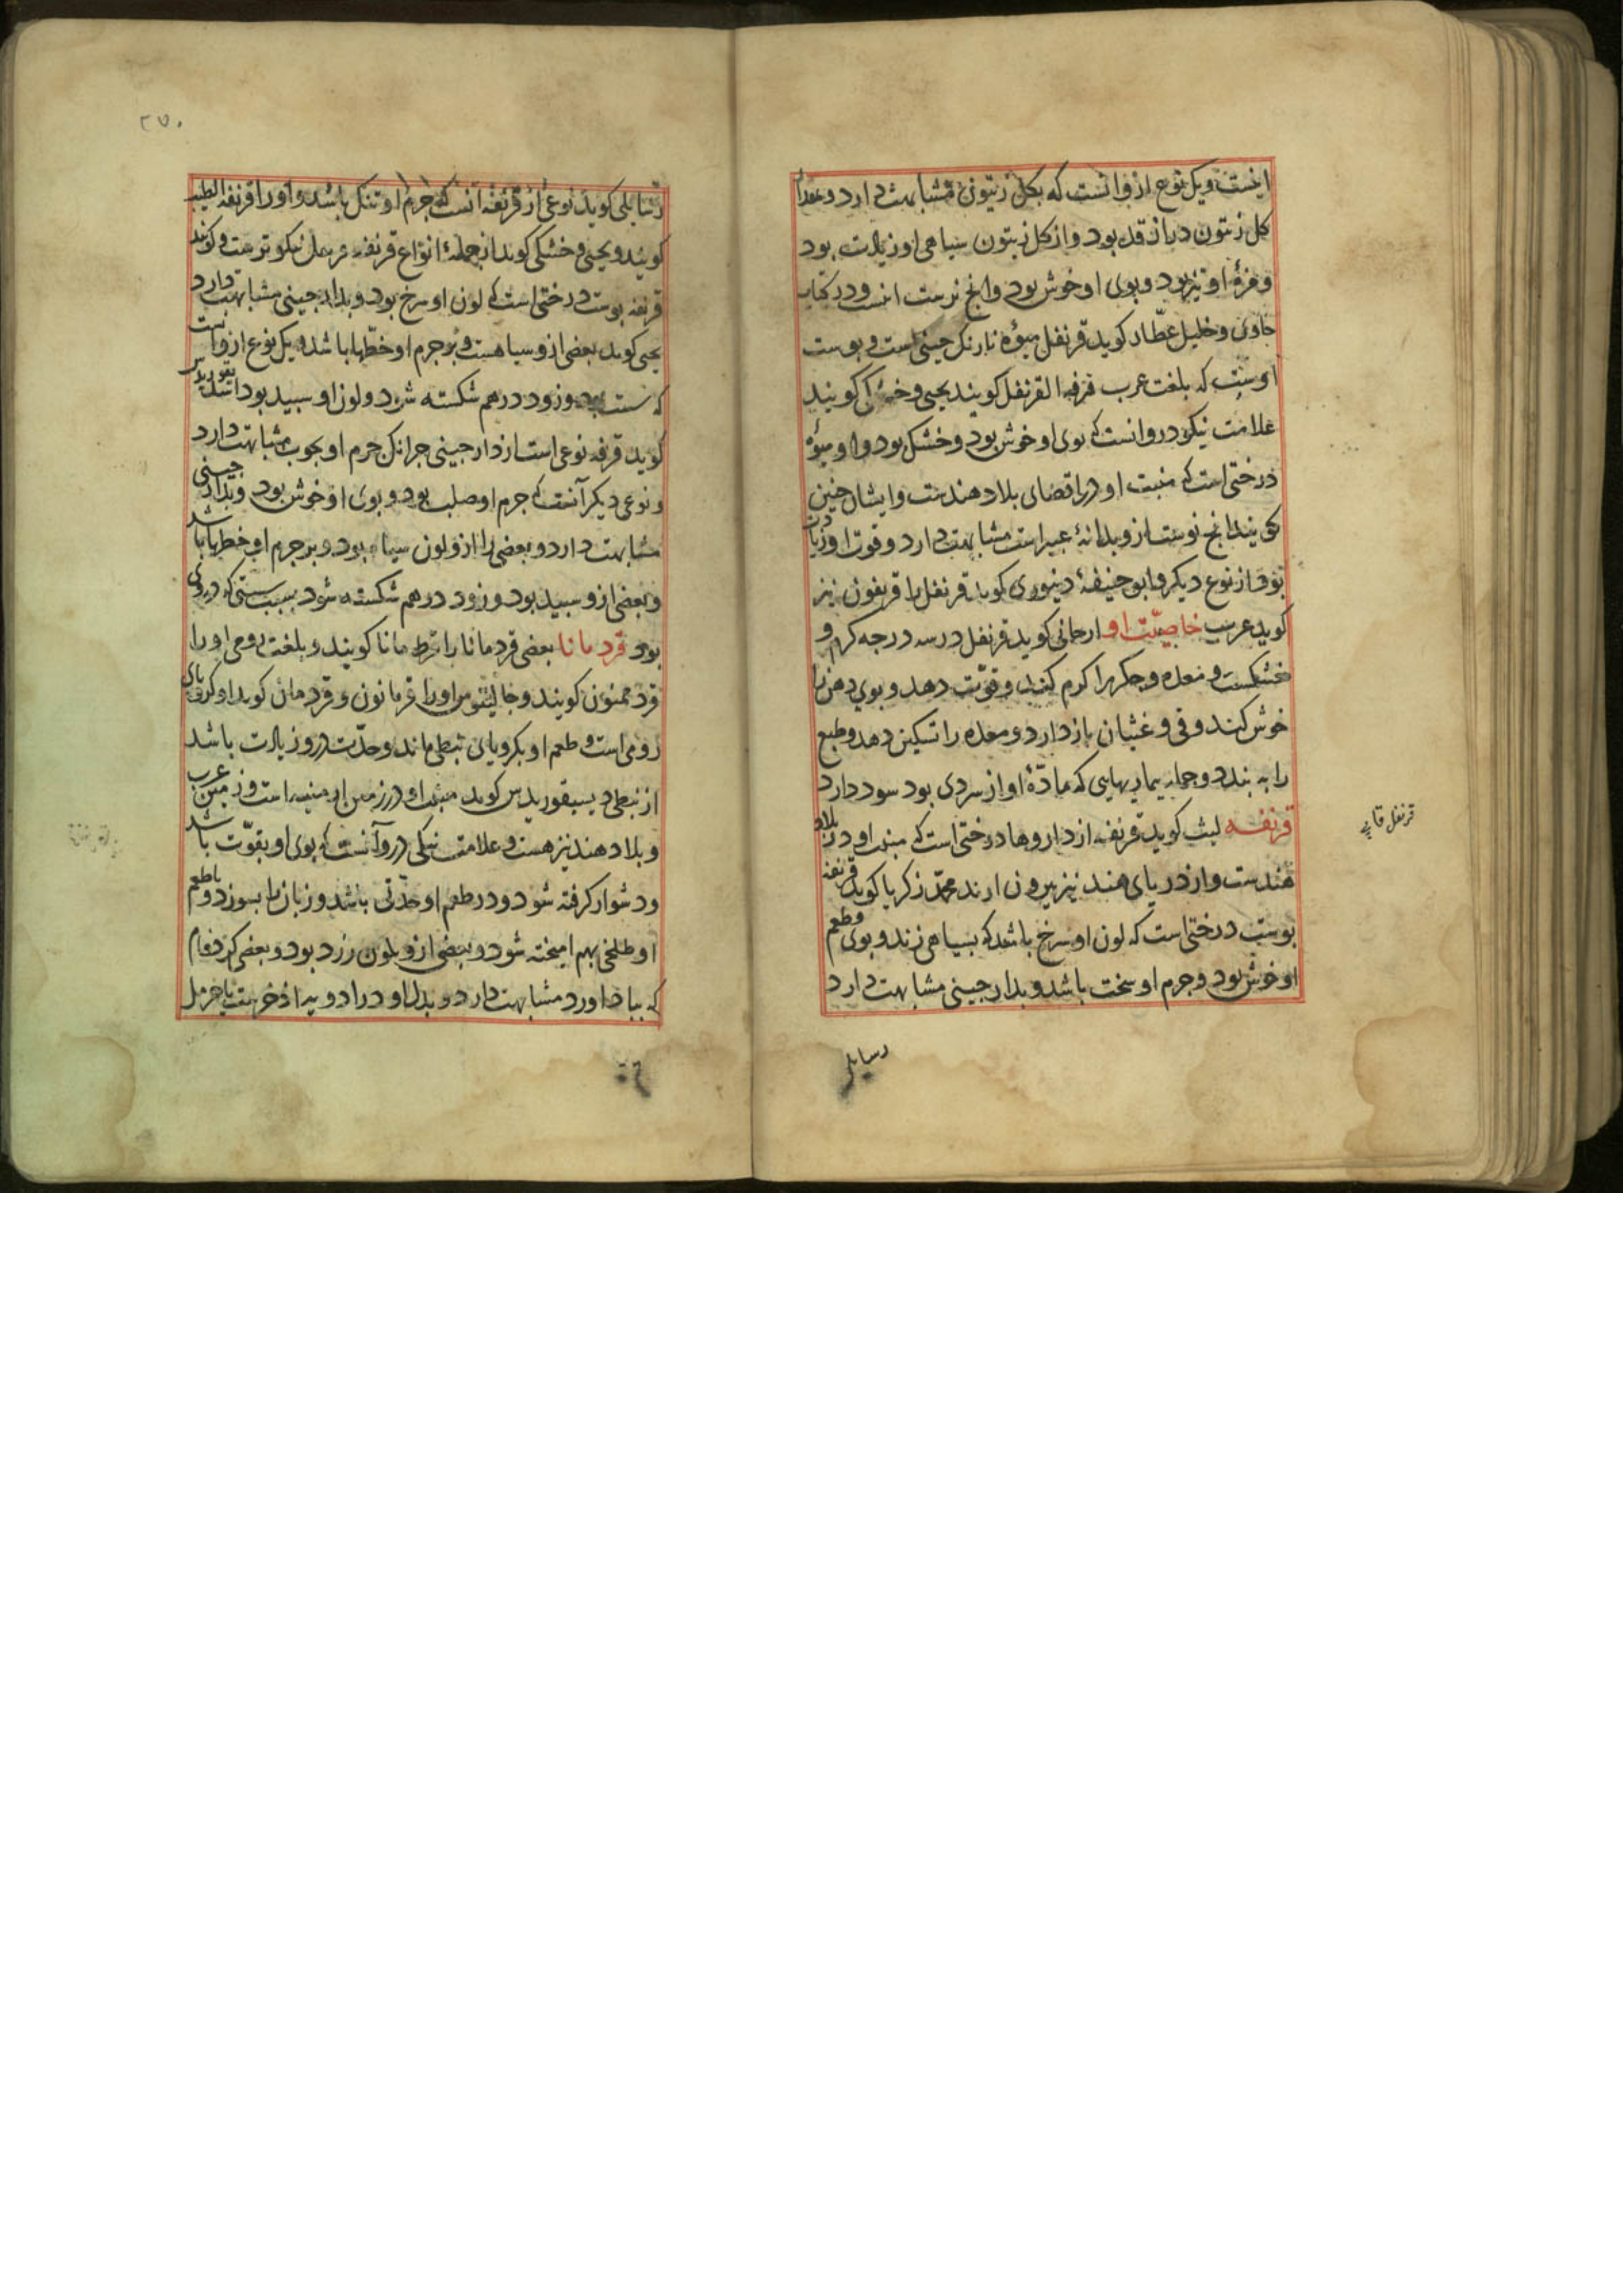 اینست و یک نوع ازو انست که بکل زیتون مشابهت دارد و مقدار
کل زیتون دراز قد بود و از کل زیتون سیاهی او زیادت بود
و مزهٔ او تیز بود و بوی او خوش بود وانج نرست انست و در کتاب
حاوی و خلیل عطّار کوید قرنفل میوهٔ نارنک چینی است و پوست
اوست که بلغت عرب قرفه القرنفل کویند یحیی و خشکی کویند
علامت نیکو درو انست که بوی او خوش بود و خشک بود و او میوهٔ
درختی است که منبت او در اقصای بلاد هندست و ایشان چنین
کویند انج نوست ازو بدانهٔ عبیر است مشابهت دارد و قوت او زیادت
بود از نوع دیکر و ابو حنیفهٔ دنیوری کوید قرنفل را قرنفون نیز
کوید عرب خاصیّت او ارجانی کوید قرنفل در سه درجه کرم و
خشکست و معده و جکر را کرم کند و قوّت دهد و بوی دهن را
خوش کند و قی و غثیان باز دارد و معده را تسکین دهد و طبع
را به بندد و جمله بیماریهایی که مادّهٔ او از سردی بود سود دارد
قرنفه لیث کوید قرنفه از داروها درختی است که منبت او در بلاد
هندست و از دریای هند نیز بیرون ارند محمّد زکریا کوید قرنفه
پوست درختی است که لون او سرخ باشد که بسیاهی زند و بوی و طعم
او خوش بود و جرم او سخت باشد و بدارچینی مشابهت دارد
رسایلی
۲۷۰
رسایلی کوید نوعی از قرنفه انست که جرم او تنک باشد و او را قرنفة الطیب
کویند و یحیی و خشکی کوید از جملهٔ انواع قرنفه نیکوترست و کویند
قرنفه پوست درختی است که لون او سرخ بود و بدارچینی مشابهت دارد
یحیی کوید بعضی ازو سیاهست و بر جرم او خطّها باشد و یک نوع ازو انست
که سست بود و زود درهم شکسته شود و لون او سپید بود
کوید قرفه نوعی است از دارچینی جرانک جرم او بچوب مشابهت دارد
و نوعی دیکر آنست که جرم او صلب بود و بوی او خوش بود و بدارچینی
مشابهت دارد و بعضی را ازو لون سیاه بود و بر جرم او خطها باشد
و بعضی ازو سپید بود و زود درهم شکسته شود بسبب سستی که در وی
بود قردمانا بعضی قردمانا را قرطمانا کویند و بلغت رومی او را
قردممنون کویند و جالینوس او را غرمانون و قردمان کوید او کرویای
رومی است و طعم او بکرویای نبطی ماند و حدّت درو زیادت باشد
از نبطی دیسیقوریدس کوید منبت او در زمین ارمنیه است و زمین عرب
و بلاد هند نیز هست و علامت نیکی درو آنست که بوی او بقوّت باشد
و دشوار کرفته شود و در طعم او حدّتی باشد و زبان را بسوزد و با طعم
او طلخی بهم امیخته شود و بعضی ازو بلون زرد بود و بعضی
که بباداورد مشابهت دارد و بدل او در ادویه اذخرست یا حرمل